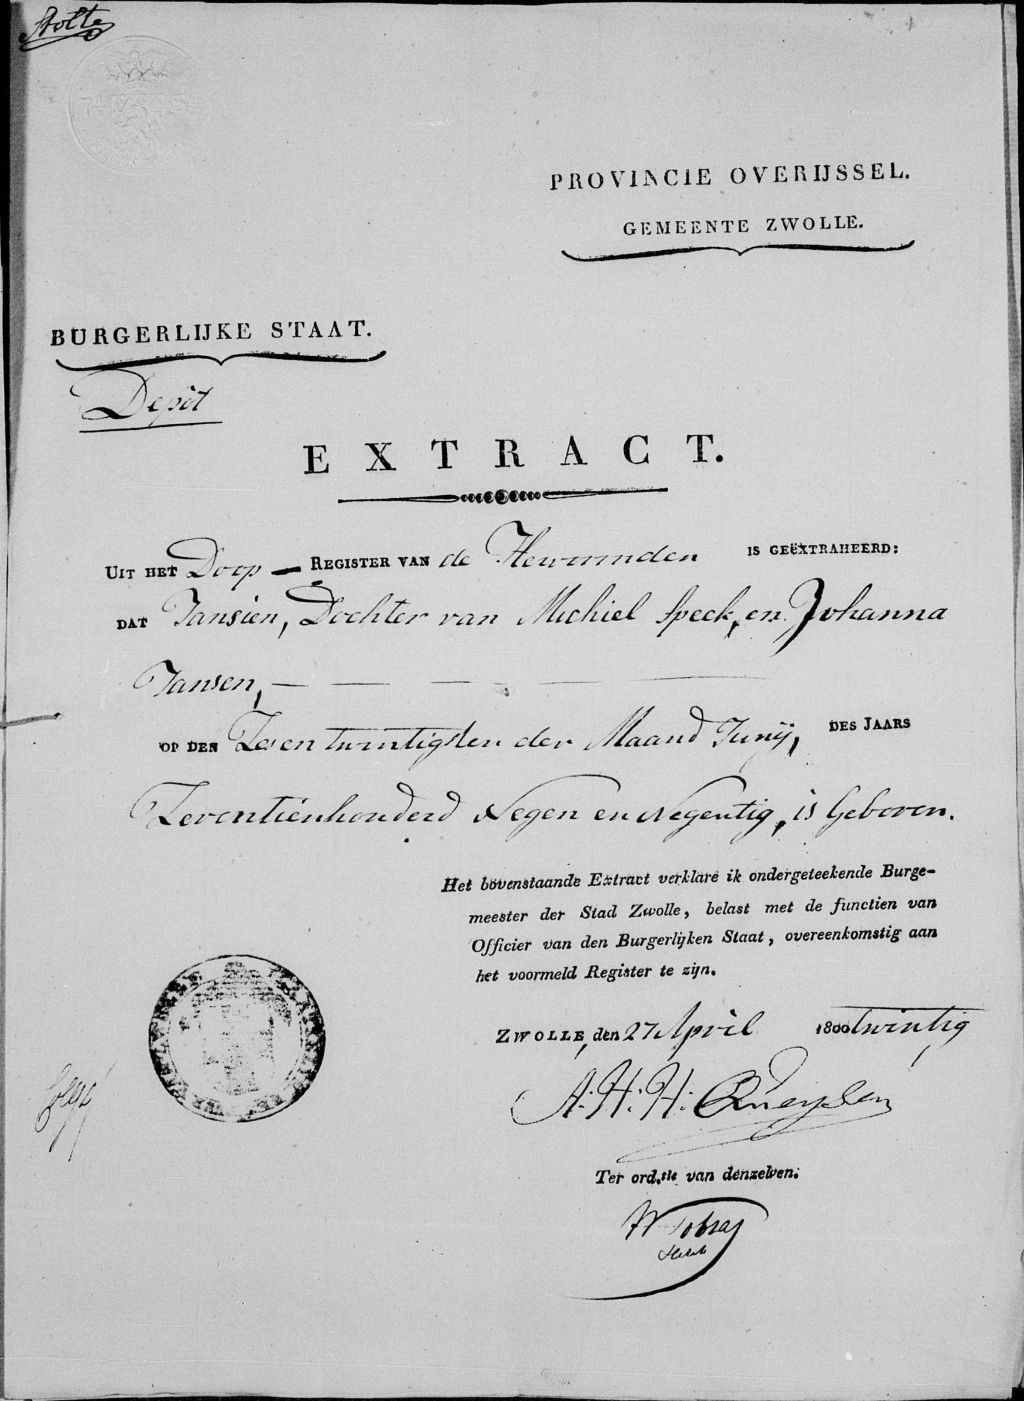 Stolte
PROVINCIE OVERIJSSEL.
GEMEENTE ZWOLLE.
BURGERLIJKE STAAT.
Depôt
EXTRACT.
UIT HET Doop REGISTER VAN de Hervormden IS GEËXTRAHEERD:
DAT Jansien, Dochter van Michiel Speck, en Johanna
Jansen,
OP DEN Zeven twintigsten der Maand Junij, DES JAARS
Zeventienhonderd Negen en Negentig, is Geboren.
Het bovenstaande Extract verklare ik ondergeteekende Burge-
meester der Stad Zwolle, belast met de functien van
Officier van den Burgerlijken Staat, overeenkomstig aan
het voormeld Register te zijn.
ZWOLLE, den 27 April 1800 twintig
A: H: H: Queysen
Ter ord.tie van denzelven: